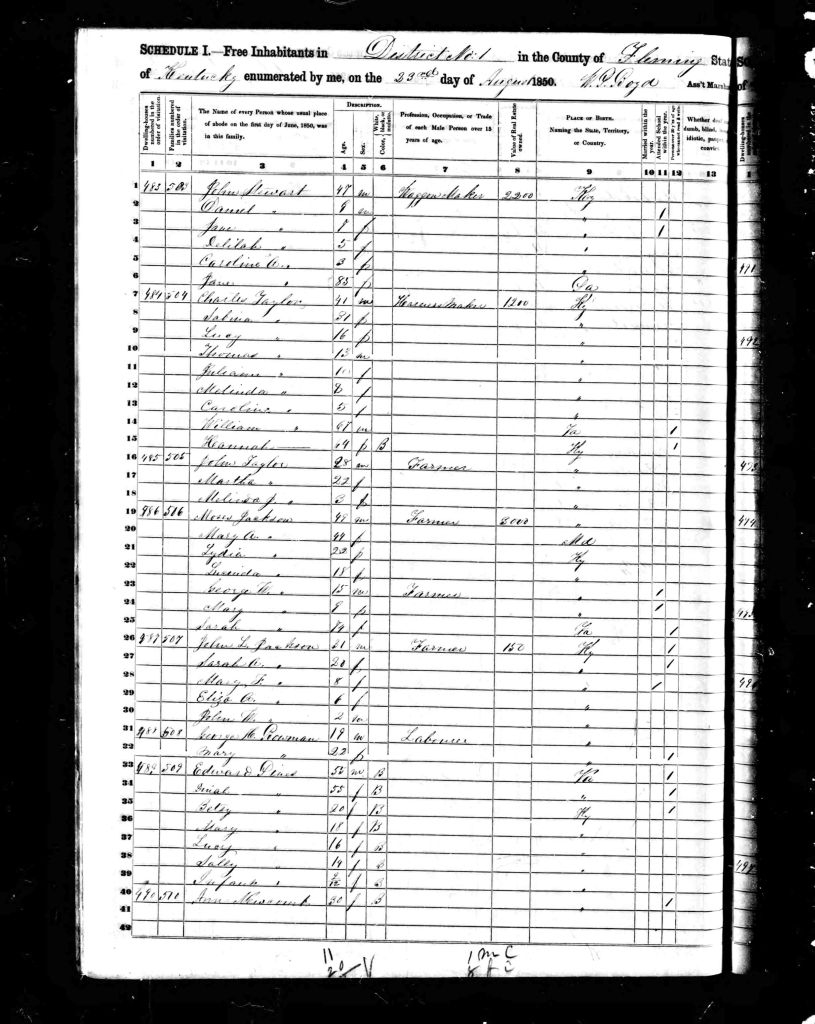 SCHEDULE I.—Free Inhabitants in District No. 1 in the County of Fleming State
of Kentucky enumerated by me, on the 23rd day of August 1850. Ass't Marshal
Dwelling-houses numbered in the order of visitation. Families numbered in the order of visitation. The Name of every Person whose usual place of abode on the first day of June, 1850, was in this family. DESCRIPTION. Age. Sex. White, black, or mulatto. Color, Profession, Occupation, or Trade of each Male Person over 15 years of age. Value of Real Estate owned. PLACE OF BIRTH. Naming the State, Territory, or Country. Married within the year. Attended School within the year. Whether deaf dumb, blind, idiotic,
1 2 3 4 5 6 7 8 9 10 11 12 13 1
1 483 503 John Stewart 47 m Waggon Maker 2200 Ky
2 Daniel " 9 m " 1
3 Jane " 7 f " 1
4 Delilah " 5 f "
5 Caroline A. " 3 f "
6 Jane " 83 f
7 484 504 Charles Taylor 41 m 1200 Ky
8 Salina " 31 f "
9 Lucy " 16 f "
10 Thomas " 13 m "
11 Juliann " 10 f "
12 Melinda " 8 f "
13 Caroline " 5 f "
14 William " 67 m Va 1
15 Hannah f B Ky 1
16 485 505 John Taylor 28 m Farmer "
17 Martha " 22 f "
18 Melissa J. " 3 f "
19 486 506 Moses Jackson 49 m Farmer 3000 "
20 Mary A. " 44 f Md
21 Lydia " 22 f Ky
22 Lucinda " 18 f "
23 George W. " 15 m Farmer " 1
24 Mary " 9 f " 1
25 Sarah " f Va 1
26 487 507 John L. Jackson 31 m Farmer 150 Ky 1
27 Sarah A. " 20 f " 1
28 Mary F. " 8 f " 1
29 Eliza A. " 6 f "
30 John W. " 2 m "
31 488 508 George H. 19 m Labourer "
32 Mary " 22 f " 1
33 489 509 Edward 55 m B Va 1
34 " 55 f B " 1
35 Betsy " 20 f B Ky 1
36 Mary " 18 f B "
37 Lucy " 16 f B "
38 Sally " 14 f B "
39 Infant " B "
40 490 510 Ann Newcomb 30 f B " 1
41
42
11
20
1 m C
8 f C